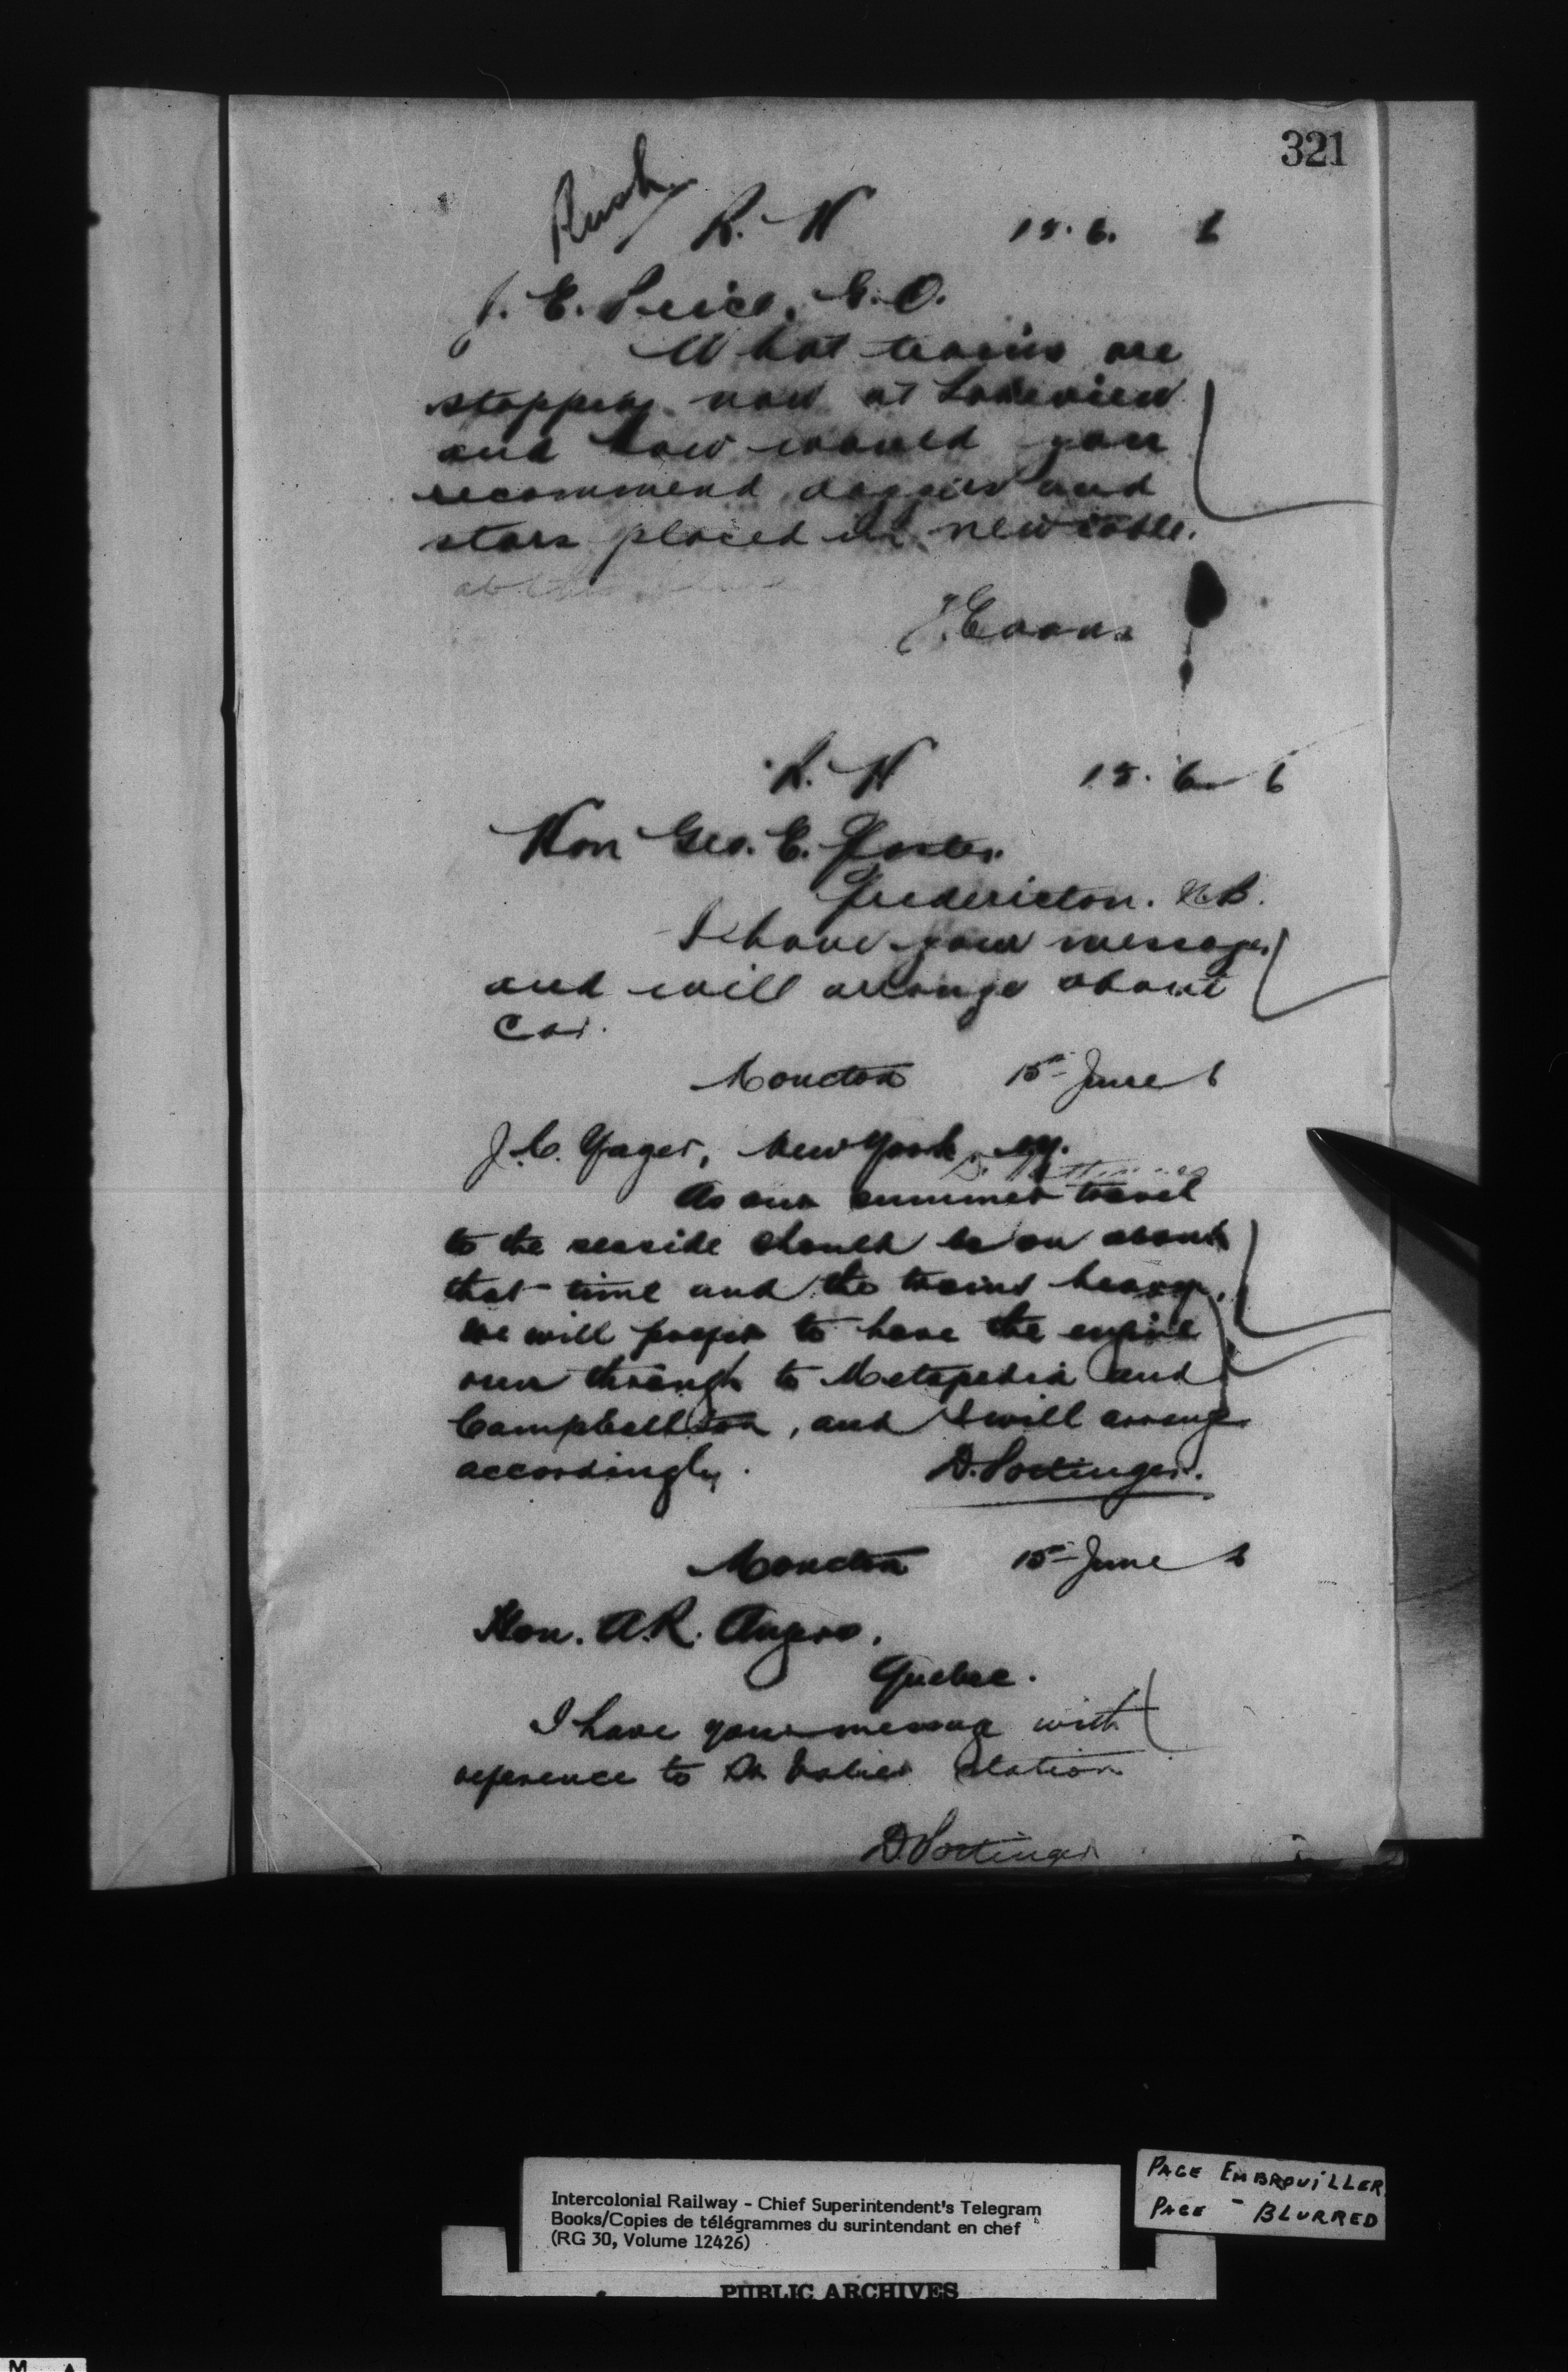 321
Rush
R. N 15. 6. 6
J. E. Price, G.O.
What trains are
stopping now at Lakeview
and how would you
recommend daggers and
stars placed in new table.
J. Evans
R. N 15. 6 6
Hon Geo. E. Foster.
Fredericton. N.B.
I have your message,
and will arrange about
Car.
Moncton 15th June 6
J.C. Yager, New York, N.Y.
As our summer travel
to the seaside should be on about
that time and the trains heavy,
we will prefer to have the engine
run through to Metapedia and
Campbellton, and I will arrange
accordingly.
D. Pottinger.
Moncton 15th June 6
Hon. A.R. Angers,
Quebec.
I have your message with
reference to St. Valier station
D. Pottinger
Intercolonial Railway - Chief Superintendent's Telegram
Books/Copies de télégrammes du surintendant en chef
(RG 30, Volume 12426)
PUBLIC ARCHIVES
PAGE EMBROUILLER
PAGE - BLURRED